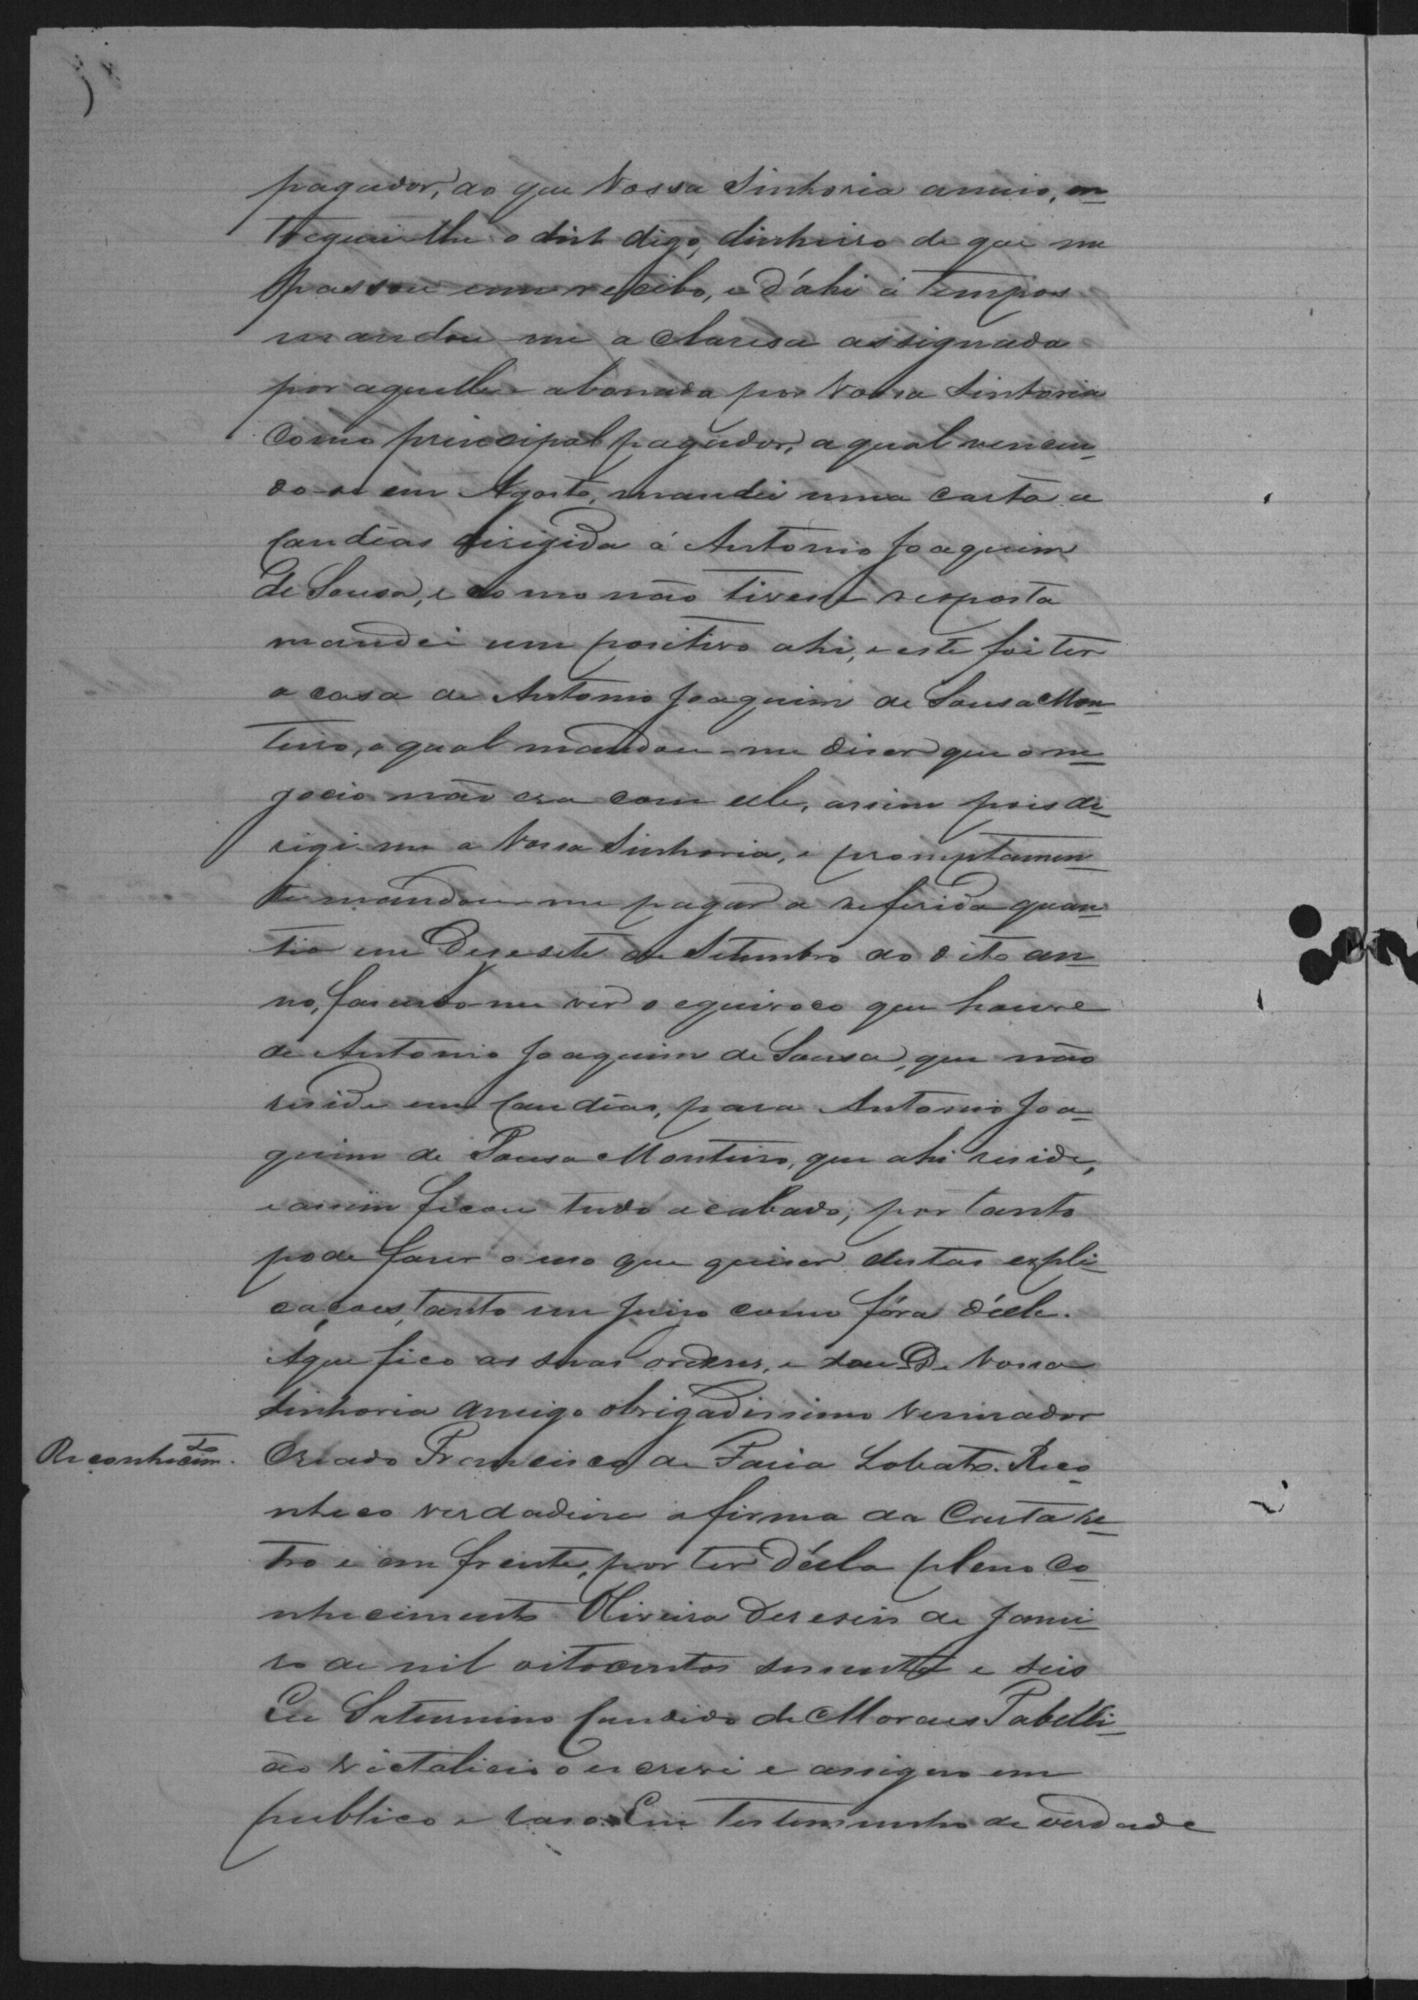 pagador, ao que Vossa Sinhoria anuio, en-
treguei-lhe o dist digo, dinheiro de que me
passou um recibo, e d'ahi á tempos
mandou-me a clareza assignada
por aquelle e abonada por Vossa Sinhoria
como principal pagador, a qual vencen-
do-se em Agosto, mandei uma carta a
Candêas dirigida á Antonio Joaquim
de Sousa, e como não tivesse resposta
mandei um positivo ahi, e este foi ter
a casa de Antonio Joaquim de Sousa Mon-
teiro, o qual mandou-me diser que o ne-
gocio não era com elle, assim pois di-
rigi-me a Vossa Sinhoria, e promptamen-
te mandou-me pagar a referida quan-
tia em Desesete de Setembro do dito an-
no, fasendo-me ver o equivoco que houve
de Antonio Joaquim de Sousa, que não
reside em Candêas, para Antonio Joa-
quim de Sousa Monteiro, que ahi reside,
e assim ficou tudo acabado, por tanto
pode faser o uso que quiser destas expli-
cações, tanto em Juiso como fóra d'elle.
Aqui fico as suas ordens, e sou De Vossa
Sinhoria amigo obrigadissimo Venerador
Reconhecimto. Criado Francisco de Faria Lobato. Reco-
nheco verdadeira a firma da Carta re-
tro e em frente, por ter d'ella pleno co-
nhecimento Oliveira Deseseis de Janei-
ro de mil oitocentos sessenta e seis
Eu Saturnino Candido de Moraes Tabelli-
ão Vitalicio o escrevi e assigno em
publico e raso. Em testemunho de verdade